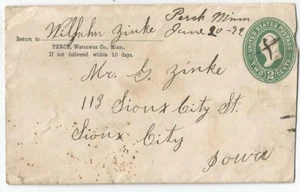 Perch Minn
Return to Wilhhn Zinke June 20-92
PERCH, Watonwan Co., Minn.,
If not delivered within 10 days.
UNITED STATES POSTAGE
2
TWO CENTS
Mr. G. Zinke
113 Sioux City St.
Sioux City
Iowa